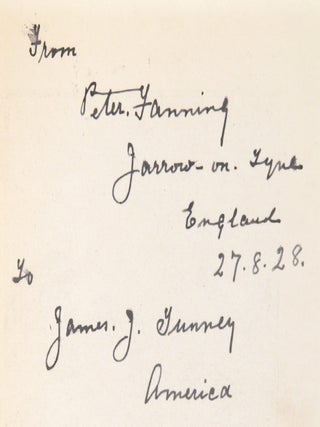 From
Peter. Fanning
Jarrow-on. Tyne
England
27.8.28.
To
James. J. Tunney
America